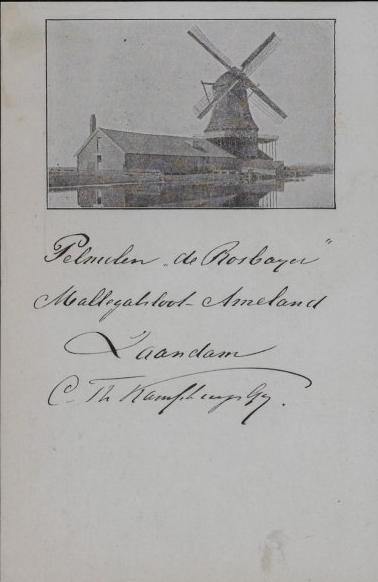 Pelmolen "de Rosbayer"
Mallegatsloot - Ameland
Zaandam
C. Th. Kamphuys Gz.